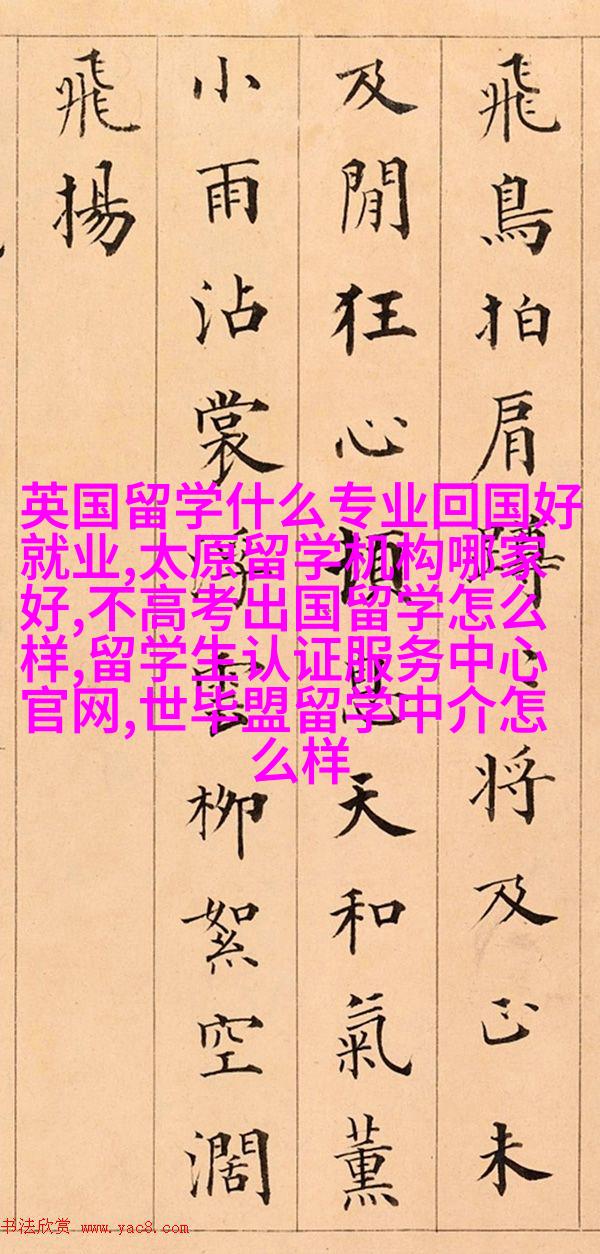 飛鳥拍肩將及正未
及閒狂心頓天和氣薰
小雨沾裳雲柳絮空濶
飛揚
英国留学什么专业回国好
就业,太原留学机构哪家
好,不高考出国留学怎么
样,留学生认证服务中心
官网,世毕盟留学中介怎
么样
书法欣赏 www.yac8.com